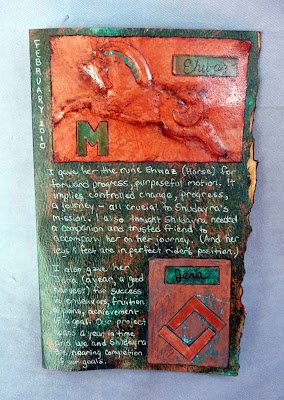 FEBRUARY 2010
Ehwaz
M
I gave her the rune Ehwaz (Horse) for
forward progress, purposeful motion. It
implies controlled change, progress,
a journey - all crucial to Shidayra's
mission. I also thought Shidayra needed
a companion and trusted friend to
accompany her on her journey. (And her
legs & feet are in perfect rider's position.)
I also gave her
Jera (a year, a good
harvest) for success
in endeavors, fruition
of plans, achievement
of a goal. Our project
was a year in time
and we and Shidayra
are nearing completion
of our goals.
Jera